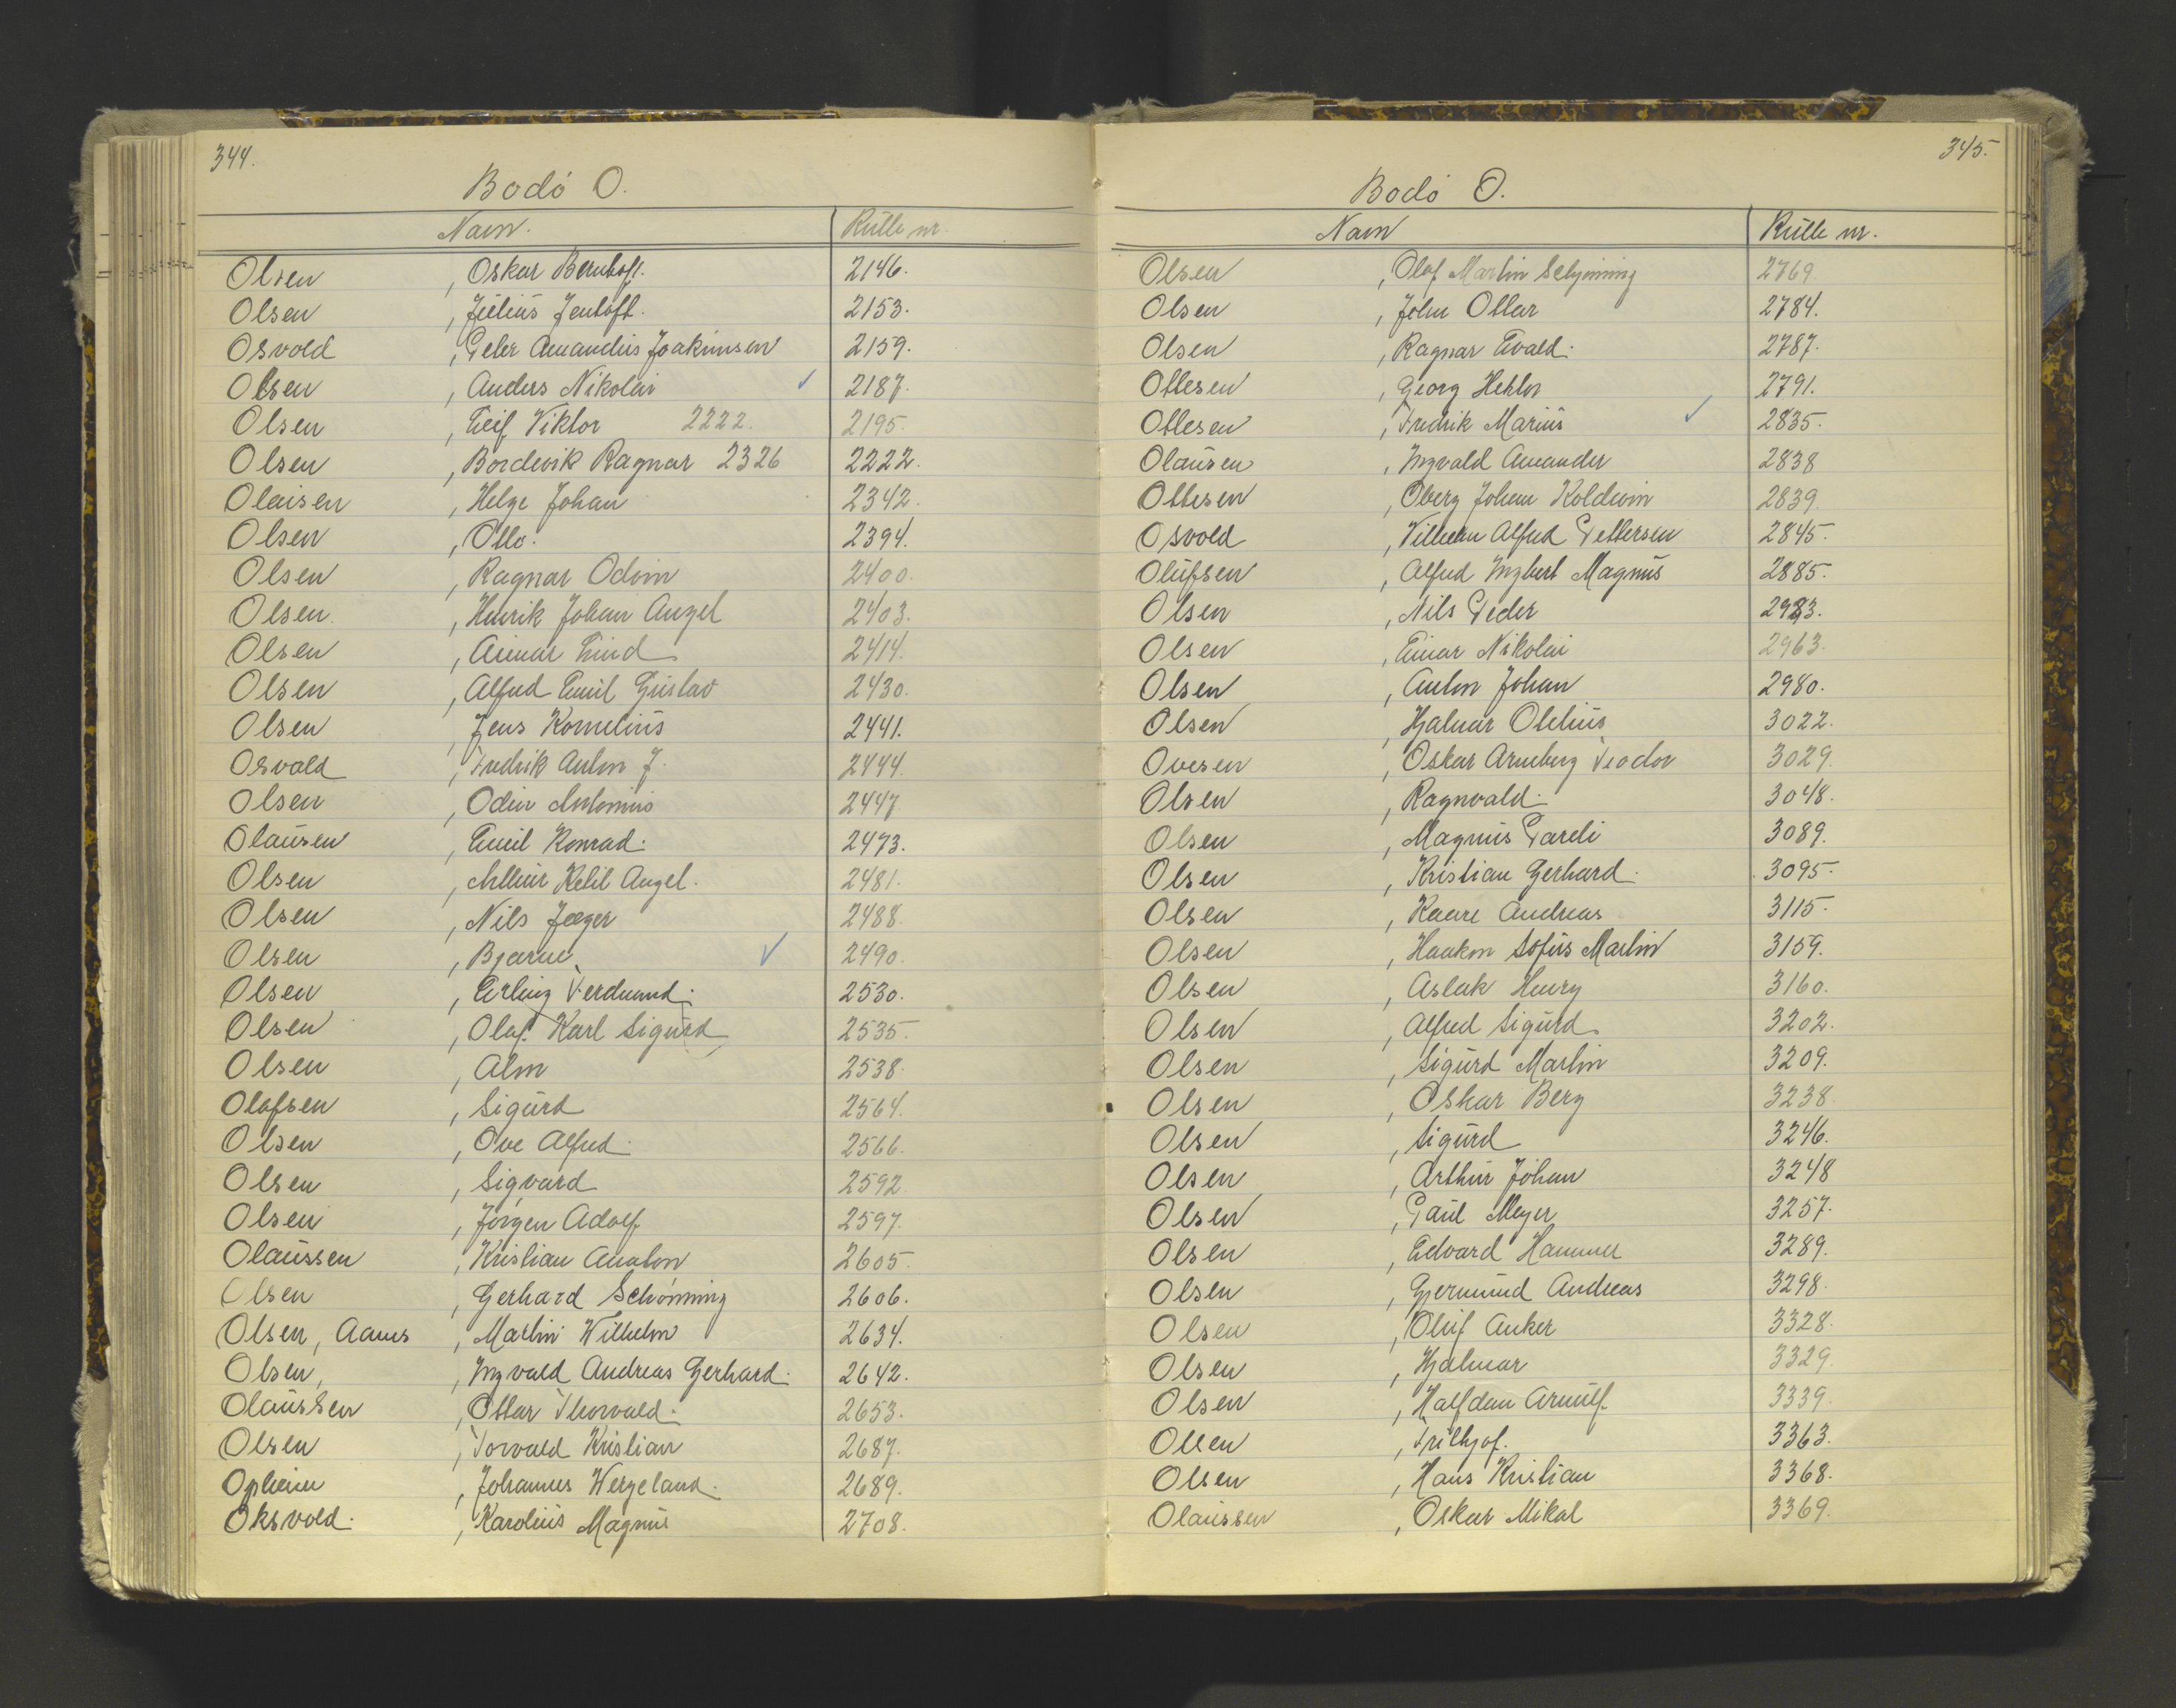 344.
Bodó O.
Navn. Rulle nr.
Olsen , Oskar Bernhoft. 2146.
Olsen , Julius Jentoft. 2153.
Osvold , Peter Amandus Joakimsen 2159.
Olsen , Anders Nikolai ✓ 2187.
Olsen , Leif Viktor 2222. 2195.
Olsen , Bordevik Ragnar 2326 2222.
Olaisen , Helge Johan 2342.
Olsen , Otto. 2394.
Olsen , Ragnar Odin 2400.
Olsen , Henrik Johan Angel 2403.
Olsen , Einar Lind 2414.
Olsen , Alfred Emil Gustav 2430.
Olsen , Jens Kornelius 2441.
Osvold , Fredrik Anton J. 2444.
Olsen , Odin Antonius 2447
Olausen , Emil Konrad. 2473.
Olsen , Ketil Angel. 2481.
Olsen , Nils Jæger 2488.
Olsen , Bjarne ✓ 2490.
Olsen , Erling Verdinand. 2530.
Olsen , Olaf Karl Sigurd 2535.
Olsen , Alm 2538.
Olofsen , Sigurd 2564.
Olsen , Ove Alfred. 2566.
Olsen , Sigvard 2592.
Olsen , Jørgen Adolf 2597.
Olaussen , Kristian Anaton 2605.
Olsen , Gerhard Schønning 2606.
Olsen, Aanes , Martin Wilhelm 2634.
Olsen, , Ingvald Andreas Gerhard. 2642.
Olaussen , Ottar Thorvald. 2653.
Olsen , Torvald Kristian 2687.
Opheim , Johannes Wergeland. 2689.
Oksvold. , Karolius Magnus 2708.
345.
Bodó O.
Navn Rulle nr.
Olsen , Olaf Martin Schjønning 2769
Olsen , John Ottar 2784.
Olsen , Ragnar Evald. 2787.
Ottesen , Georg Hektor 2791.
Ottesen , Fredrik Marius ✓ 2835.
Olausen , Ingvald Amander 2838
Ottesen , Oberg Johan Koldevin 2839.
Osvold , Vilhelm Alfred Pettersen 2845.
Olufsen , Alfred Ingbert Magnus 2885.
Olsen , Nils Peder
Olsen , Einar Nikolai 2963.
Olsen , Anton Johan 2980.
Olsen , Hjalmar Otelius 3022.
Ovesen , Oskar Arneberg Teodor 3029.
Olsen , Ragnvald. 3048.
Olsen , Magnus Pareli 3089.
Olsen , Kristian Gerhard. 3095.
Olsen , Kaare Andreas 3115.
Olsen , Haakon Sofus Martin 3159.
Olsen , Aslak Henry 3160.
Olsen , Alfred Sigurd 3202.
Olsen , Sigurd Martin 3209.
Olsen , Oskar Berg 3238.
Olsen , Sigurd 3246.
Olsen , Arthur Johan 3248
Olsen , Paul Meyer 3257.
Olsen , Edvard Hammer 3289.
Olsen , Gjermund Andreas 3298.
Olsen , Oluf Anker 3328.
Olsen , Hjalmar 3329.
Olsen , Halfdan Arnulf 3339.
Olsen , Frithjof. 3363.
Olsen , Hans Kristian 3368.
Olaussen , Oskar Mikal 3369.